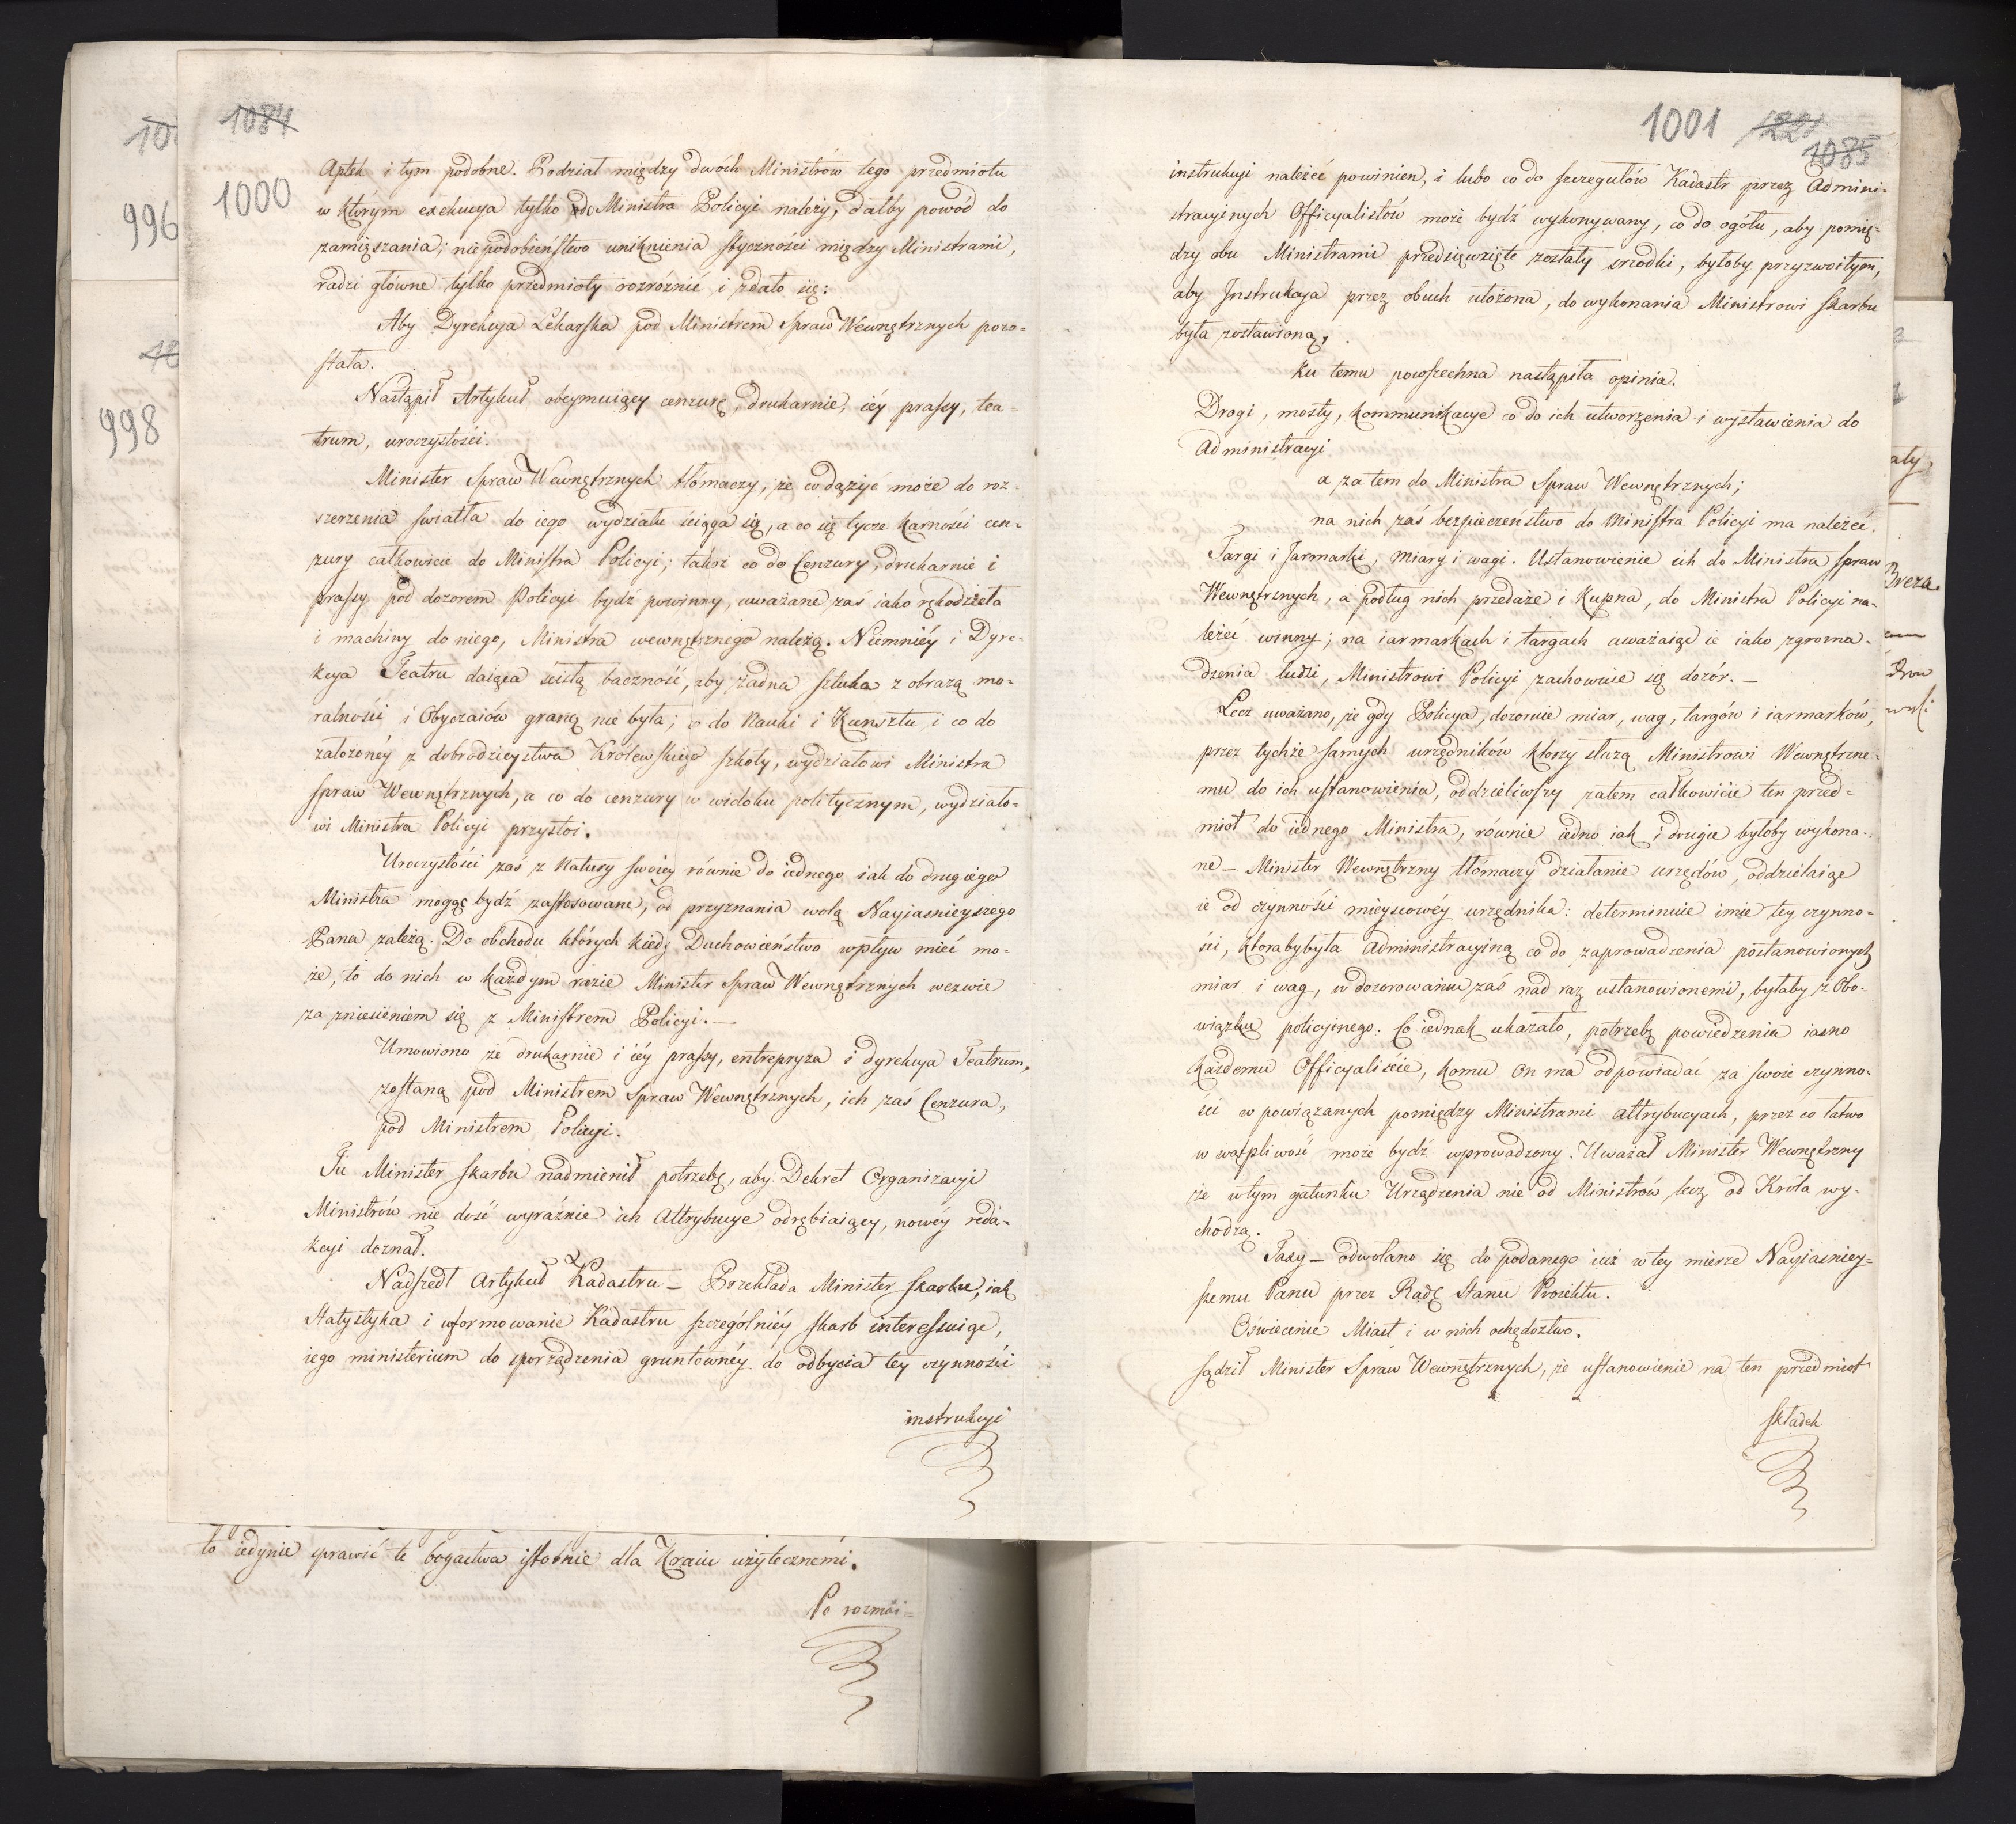 1084
1000
Aptek i tym podobne. Podział między dwóch Ministrów tego przedmiotu
w którym exekucya tylko do Ministra Policyi należy, dałby powód do
zamięszania; niepodobieństwo uniknienia styczności między Ministrami,
radzi główne tylko przedmioty rozróżnić i zdało się:
Aby Dyrekcya Lekarska pod Ministrem Spraw Wewnętrznych pozo-
stała.
Nastąpił Artykuł obeymuiący cenzurę, drukarnie, iéy prassy, tea-
trum, uroczystości.
Minister Spraw Wewnętrznych tłómaczy, że co dążyć może do roz-
szerzenia swiatła do iego wydziału ściąga się, a co się tycze karności cen-
zury całkowicie do Ministra Policyi; takoż co do Cenzury, drukarnie i
prassy pod dozorem Policyi bydź powinny, uważane zaś iako rękodzieła
i machiny do niego, Ministra wewnętrznego należą. Niemniéy i Dyre-
kcya Teatru daiąca scisłą baczność, aby żadna sztuka z obrazą mo-
ralności i Obyczaiów graną nie była; co do Nauki i Kunsztu, i co do
założonéy z dobrodzieystwa Królewskiego szkoły, wydziałowi Ministra
spraw Wewnętrznych, a co do cenzury w widoku politycznym, wydziało-
wi Ministra Policyi przystoi.
Uroczystości zaś z Natury swoiey równie do iednego iak do drugiego
Ministra mogąc bydź zastosowane, od przyznania wolą Nayiasnieyszego
Pana zależą. Do obchodu których kiedy Duchowieństwo wpływ mieć mo-
że, to do nich w każdym razie Minister Spraw Wewnętrznych wezwie
za zniesieniem się z Ministrem Policyi.—
Umowiono że drukarnie i iéy prassy, entrepryza i dyrekcya Teatrum,
zostaną pod Ministrem Spraw Wewnętrznych, ich zaś Cenzura,
pod Ministrem Policyi.
Tu Minister Skarbu nadmienił potrzebę, aby Dekret Organizacyi
Ministrów nie dość wyraźnie ich Attrybucye odrębiaiący, nowéy reda-
kcyi doznał.
Nadszedł Artykuł Kadastru — Przekłada Minister Skarbu, iak
Statystyka i uformowanie Kadastru szczególniéy Skarb interessuiąc,
iego ministerium do sporządzenia gruntownéy do odbycia tey czynności
instrukcyi
1001
1085
instrukcyi należéć powinien, i lubo co do szczegułów Kadastr przez Admini-
stracyinych Officyalistów może bydź wykonywany, co do ogółu, aby pomię-
dzy obu Ministrami przedsięwzięte zostały srzodki, byłoby przyzwoitym,
aby Instrukcya przez obuch ułożona, do wykonania Ministrowi Skarbu
była zostawioną.
Ku temu powszechna nastąpiła opinia.
Drogi, mosty, kommunikacye co do ich utworzenia i wystawienia do
Administracyi
a zatem do Ministra Spraw Wewnętrznych;
na nich zaś bezpieczeństwo do Ministra Policyi ma należeć.
Targi i Jarmarki, miary i wagi. Ustanowienie ich do Ministra Spraw
Wewnętrznych, a podług nich przedaże i Kupna, do Ministra Policyi na-
leżeć winny; na iarmarkach i targach uważaiąc ie iako zgroma-
dzenia ludzi, Ministrowi Policyi zachowuie się dozór.—
Lecz uważano, że gdy Policya, dozoruie miar, wag, targów i iarmarków,
przez tychże samych urzędników ktorzy służą Ministrowi Wewnętrzne-
mu do ich ustanowienia, oddzieliwszy zatem całkowicie ten przed-
miot do iednego Ministra, równie iedno iak i drugie byłoby wykona-
ne — Minister Wewnętrzny tłómaczy działanie urzędów, oddzielaiąc
ie od czynności mieyscowéy urzędnika: determinuie imie tey czynno-
ści, ktoraby była Administracyiną co do zaprowadzenia postanowionych
miar i wag, w dozorowaniu zaś nad raz ustanowionemi, byłaby z Obo-
wiązku policyinego. Co iednak ukazało, potrzebę powiedzenia iasno
Każdemu Officyaliście, komu On ma odpowiadać za swoie czynno-
ści w powiązanych pomiędzy Ministrami attrybucyach, przez co łatwo
w wątpliwość może bydź wprowadzony. Uważał Minister Wewnętrzny
że w tym gatunku Urządzenia nie od Ministrów, lecz od Króla wy-
chodzą.
Taxy — odwołano się do podanego iuż w tey mierze Nayiasniey-
szemu Panu przez Radę Stanu Proiektu.
Oświecenie Miast i w nich ochędoztwo.
Sądził Minister Spraw Wewnętrznych, że ustanowienie na ten przedmiot
składek
996
998
to iedynie sprawić te bogactwa istotnie dla Kraiu użytecznemi.
Po rozmai=
Breza.